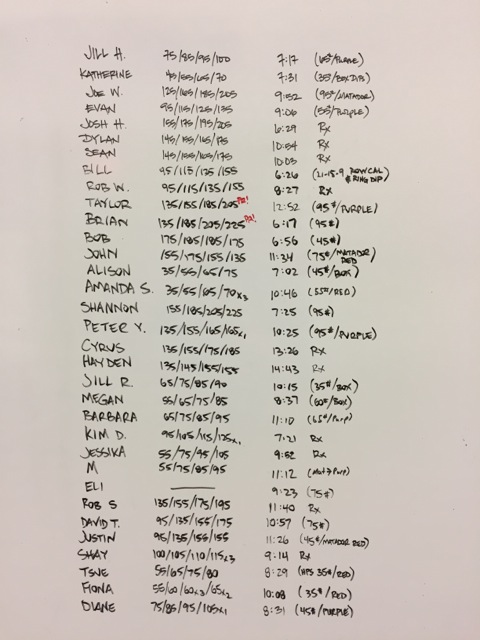 JILL H. 75/85/95/100 7:17 (65#/PLANE)
KATHERINE 45/55/65/70 7:31 (35#/BOX DIPS)
JOE W. 125/165/185/205 9:52 (95#/MATADOR)
EVAN 95/115/125/135 9:06 (55#/PURPLE)
JOSH H. 155/175/195/205 6:29 Rx
DYLAN 145/155/165/175 10:54 Rx
SEAN 145/155/165/175 10:03 Rx
BILL 95/115/135/155 6:26 (21-15-9 ROW CAL & RING DIP)
ROB W. 95/115/135/155 8:27 Rx
TAYLOR 135/155/185/205 PR! 12:52 (95#/PURPLE)
BRIAN 135/185/205/225 PR! 6:17 (95#)
BOB 175/185/185/175 6:56 (45#)
JOHN 155/175/155/135 11:34 (75#/MATADOR RED)
ALISON 35/55/65/75 7:02 (45#/BOX)
AMANDA S. 35/55/65/70x3 10:46 (55#/RED)
SHANNON 155/185/205/225 7:25 (95#)
PETER Y. 135/155/165/165x1 10:25 (95#/PURPLE)
CYRUS 135/155/175/185 13:26 Rx
HAYDEN 135/145/155/155 14:43 Rx
JILL R. 65/75/85/90 10:15 (35#/BOX)
MEGAN 55/65/75/85 8:37 (60#/BOX)
BARBARA 65/75/85/95 11:10 (65#/Purp)
KIM D. 95/105/115/125x1 7:21 Rx
JESSIKA 55/75/95/105 9:52 Rx
M 55/75/85/95 11:12 (Mat → Purp)
ELI 9:23 (75#)
ROB S 135/155/175/195 11:40 Rx
DAVID T. 95/135/155/175 10:57 (75#)
JUSTIN 95/135/155/155 11:26 (45#/MATADOR RED)
SHAY 100/105/110/115x3 9:14 Rx
TSUE 55/65/75/80 8:29 (HPS 35#/RED)
FIONA 55/60/60x3/65x2 10:08 (35#/RED)
DIANE 75/85/95/105x1 8:31 (45#/PURPLE)